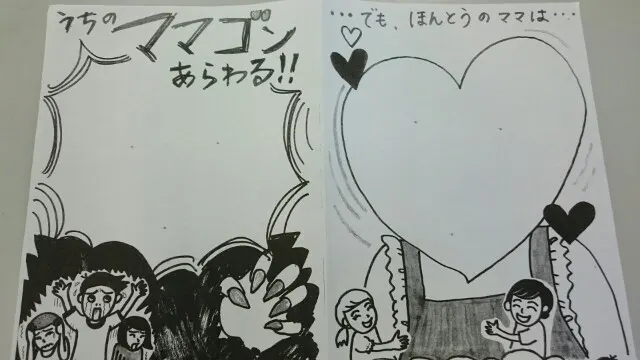 うちの
ママゴン
あらわる!!
…でも、ほんとうのママは…